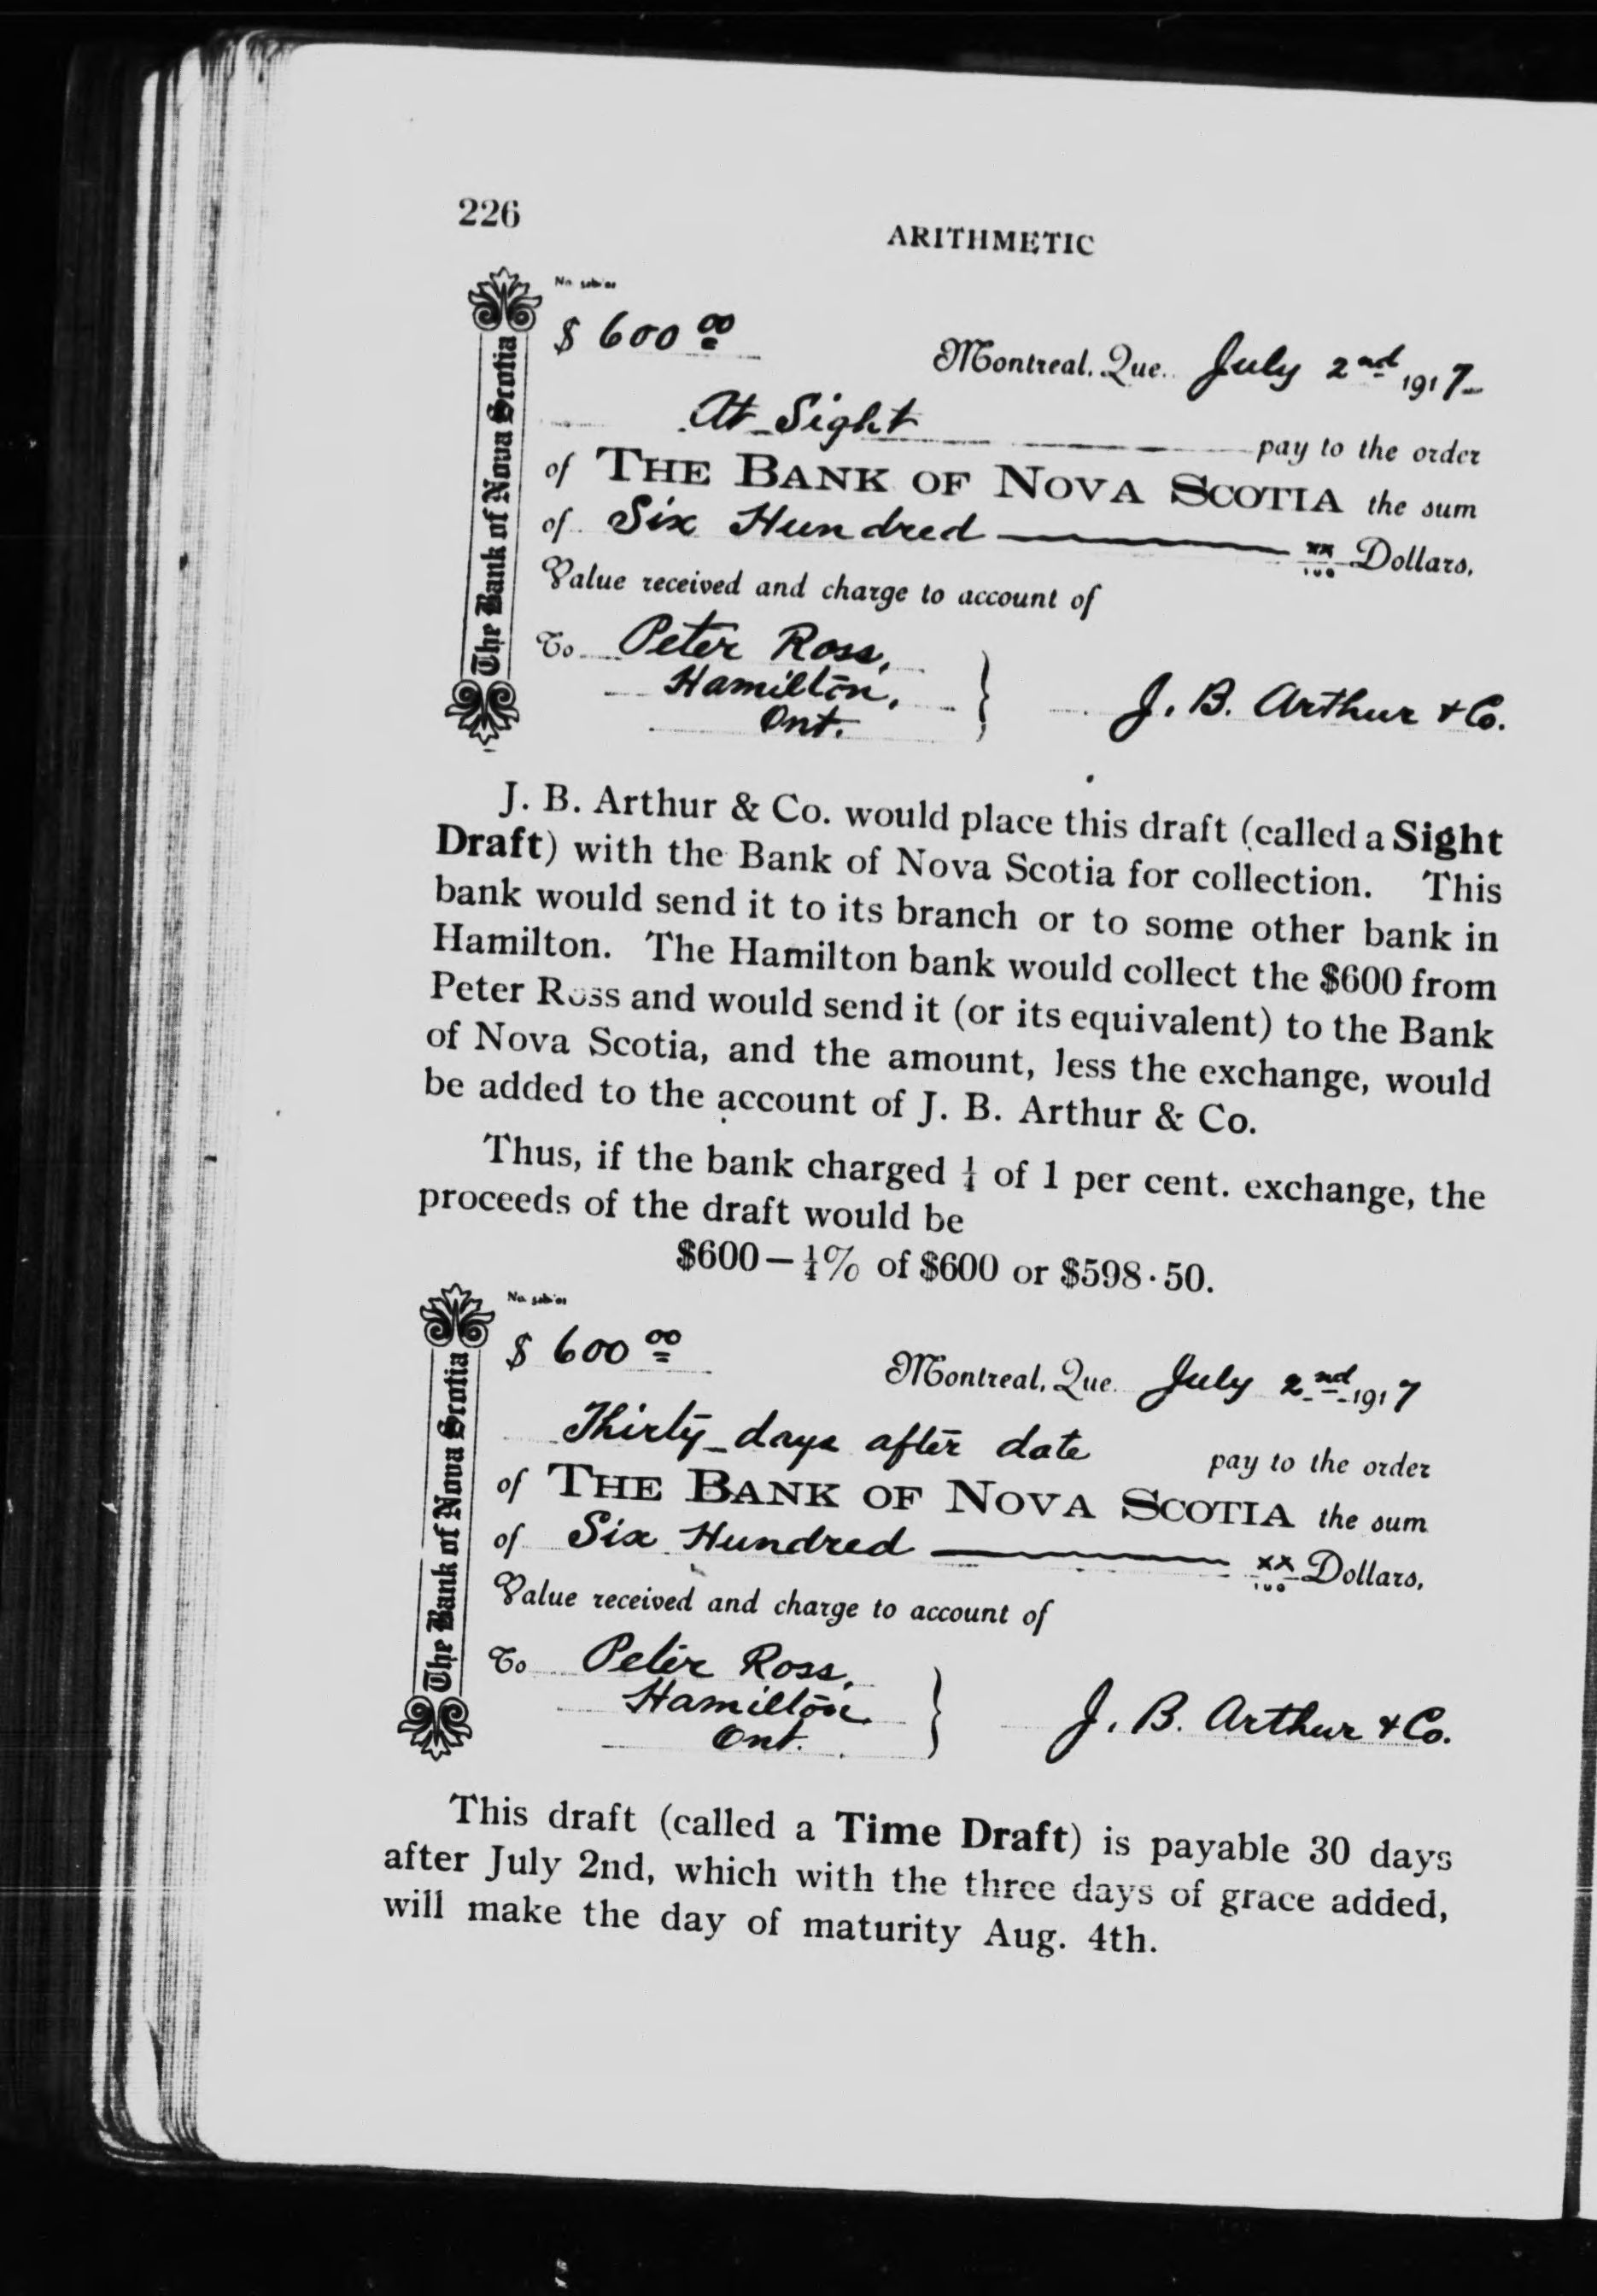 226
ARITHMETIC
No.
$ 600 00
Montreal, Que. July 2nd 1917
At Sight pay to the order
of THE BANK OF NOVA SCOTIA the sum
of Six Hundred xx/100 Dollars,
Value received and charge to account of
To Peter Ross,
Hamilton,
Ont.
J. B. Arthur & Co.
The Bank of Nova Scotia
J. B. Arthur & Co. would place this draft (called a Sight
Draft) with the Bank of Nova Scotia for collection. This
bank would send it to its branch or to some other bank in
Hamilton. The Hamilton bank would collect the $600 from
Peter Ross and would send it (or its equivalent) to the Bank
of Nova Scotia, and the amount, less the exchange, would
be added to the account of J. B. Arthur & Co.
Thus, if the bank charged ¼ of 1 per cent. exchange, the
proceeds of the draft would be
$600 – ¼% of $600 or $598·50.
No.
$ 600 00
Montreal, Que. July 2nd 1917
Thirty days after date pay to the order
of THE BANK OF NOVA SCOTIA the sum
of Six Hundred xx/100 Dollars,
Value received and charge to account of
To Peter Ross,
Hamilton.
Ont.
J. B. Arthur & Co.
The Bank of Nova Scotia
This draft (called a Time Draft) is payable 30 days
after July 2nd, which with the three days of grace added,
will make the day of maturity Aug. 4th.